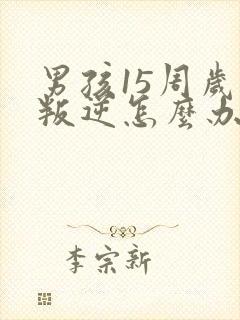 男孩15周歲
叛逆怎麼办
李宗新